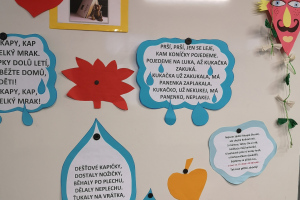 KAPY, KAP
ELKÝ MRAK.
PKY DOLŮ LETÍ
BĚŽTE DOMŮ,
DĚTI!
KAP, KAP,
ELKÝ MRAK!
PRŠÍ, PRŠÍ, JEN SE LEJE,
KAM KONÍČKY POJEDEME,
POJEDEME NA LUKA, AŽ KUKAČKA
ZAKUKÁ.
KUKAČKA UŽ ZAKUKALA, MÁ
PANENKA ZAPLAKALA,
KUKAČKO, UŽ NEKUKEJ, MÁ
PANENKO, NEPLAKEJ.
DEŠŤOVÉ KAPIČKY,
DOSTALY NOŽIČKY,
BĚHALY PO PLECHU,
DĚLALY NEPLECHU.
ŤUKALY NA VRÁTKA,